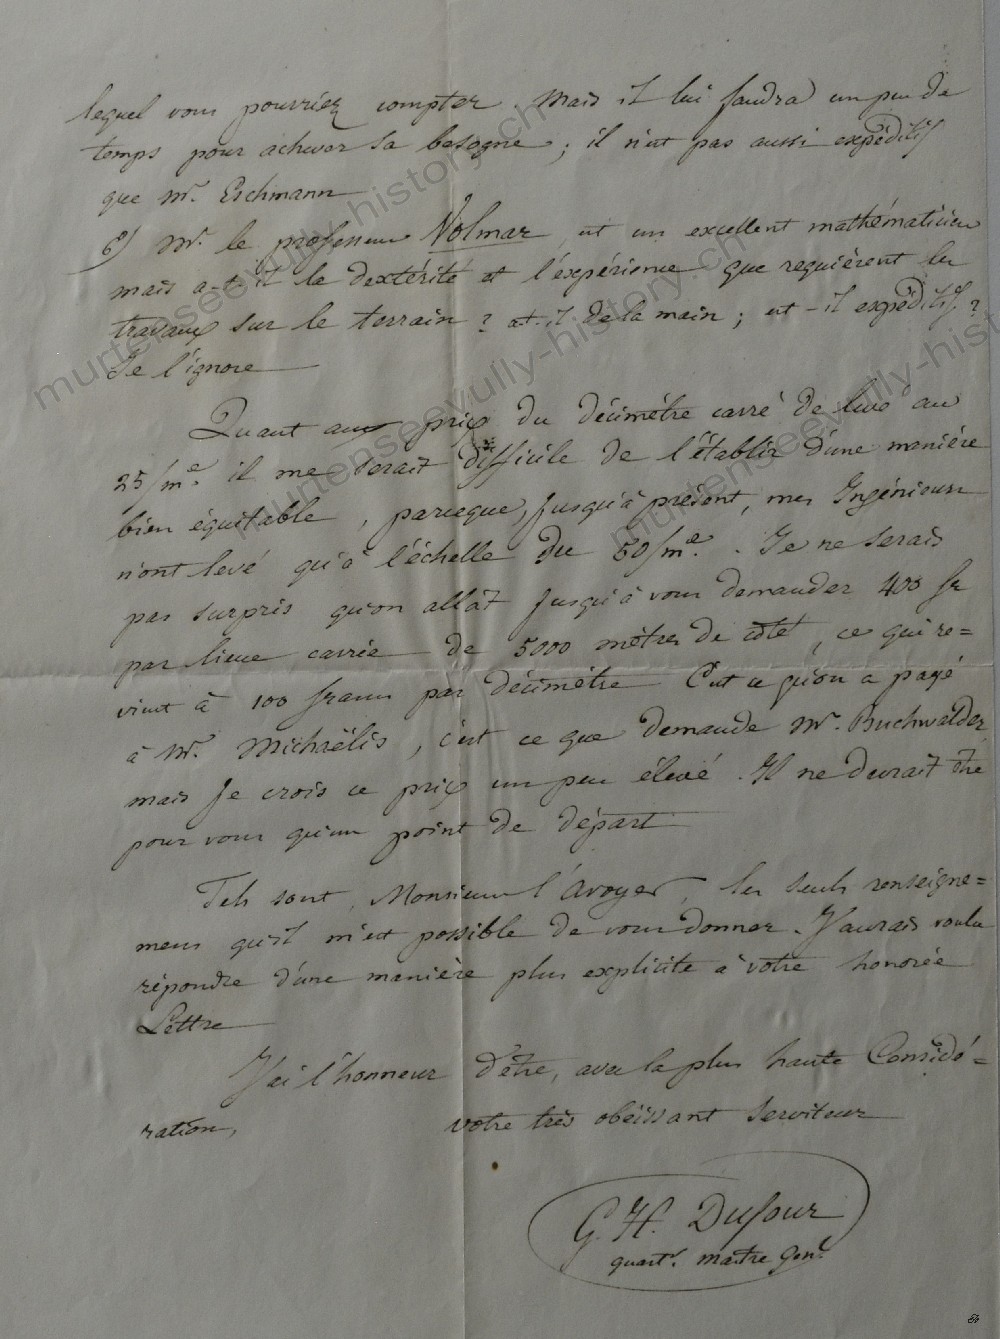 lequel vous pourriez compter. Mais il lui faudra un peu de
temps pour achever sa besogne ; il n'est pas aussi expéditif
que Mr. Eschmann
6) Mr. le professeur Volmar, est un excellent mathématicien
mais a-t-il la dextérité et l'expérience que requièrent les
travaux sur le terrain ? at-il de la main ; est-il expéditif ?
Je l'ignore
Quant aux prix du décimètre carré de levé au
25/me. il me serait difficile de l'établir d'une manière
bien équitable, parceque, jusqu'à présent, mes Ingénieurs
n'ont levé qu'à l'échelle du 50/me. Je ne serais
pas surpris qu'on allât jusqu'à vous demander 400 fr
par lieue carrée de 5000 mètres de côté, ce qui re=
vient à 100 francs par décimètre C'est ce qu'on a payé
à Mr. Michaëlis, c'est ce que demande Mr. Buchwalder
mais je crois ce prix un peu élevé. Il ne devrait être
pour vous qu'un point de départ
Tels sont, Monsieur l'Avoyer, les seuls renseigne=
mens qu'il m'est possible de vous donner. J'aurais voulu
répondre d'une manière plus explicite à votre honorée
Lettre
J'ai l'honneur d'être, avec la plus haute Considé=
ration, votre très obéissant serviteur
G. H. Dufour
quartr. maître Gén.
murtenseevully-history.ch
murtenseevully-history.ch
murtenseevully-hist